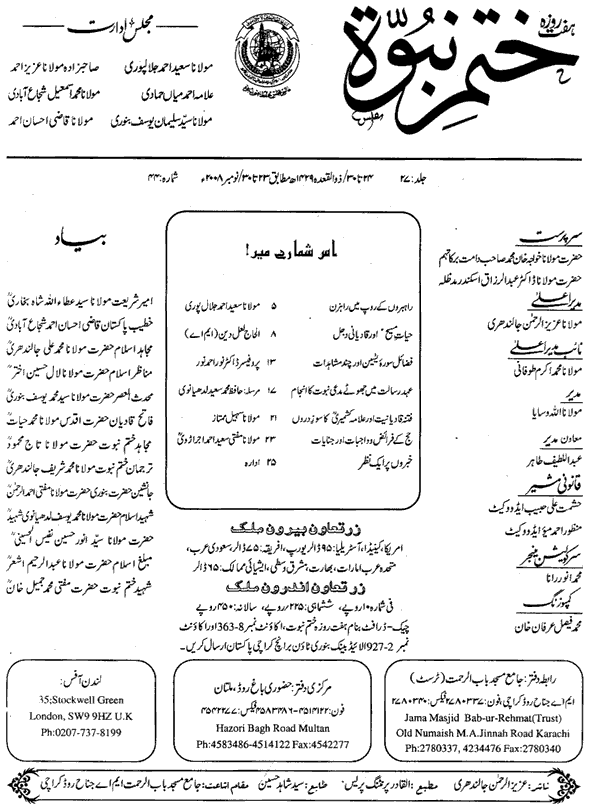 ہفت روزہ
ختم نبوۃ
مجلس ادارت
مولانا سعید احمد جلالپوری
صاحبزادہ مولانا عزیز احمد
علامہ احمد میاں حمادی
مولانا محمد اسمعیل شجاع آبادی
مولانا سید سلیمان یوسف بنوری
مولانا قاضی احسان احمد
جلد: ۲۷
۲۴ تا ۳۰/ذوالقعدہ ۱۴۲۹ھ مطابق ۲۳ تا ۳۰/نومبر ۲۰۰۸ء
شمارہ: ۴۴
سرپرست
حضرت مولانا خواجہ خان محمد صاحب دامت برکاتہم
حضرت مولانا ڈاکٹر عبدالرزاق اسکندر مدظلہ
مدیر اعلیٰ
مولانا عزیز الرحمٰن جالندھری
نائب مدیر اعلیٰ
مولانا محمد اکرم طوفانی
مدیر
مولانا اللہ وسایا
معاون مدیر
عبداللطیف طاہر
قانونی مشیر
حشمت علی حبیب ایڈووکیٹ
منظور احمد میو ایڈووکیٹ
سرکولیشن منیجر
محمد انور رانا
کمپوزنگ
محمد فیصل عرفان خان
اس شمارے میں!
راہبروں کے روپ میں راہزن ۵ مولانا سعید احمد جلال پوری
حیاتِ مسیح اور قادیانی دجل ۸ الحاج لعل دین (ایم اے)
فضائل سورۂ یٰسین اور چند مشاہدات ۱۳ پروفیسر ڈاکٹر نور احمد نور
عہد رسالت میں جھوٹے مدعی نبوت کا انجام ۱۷ مرسلہ: حافظ محمد سعید لدھیانوی
فتنہ قادیانیت اور علامہ کشمیریؒ کا سوزِ دروں ۲۱ مولانا سہیل ممتاز
حج کے فرائض و واجبات اور جنایات ۲۳ مولانا مفتی سعید احمد اجراڑویؒ
خبروں پر ایک نظر ۲۵ ادارہ
زر تعاون بیرون ملک
امریکا، کینیڈا، آسٹریلیا: ۹۵ ڈالر یورپ، افریقہ: ۷۵ ڈالر سعودی عرب،
متحدہ عرب امارات، بھارت، مشرق وسطیٰ، ایشیائی ممالک: ۶۵ ڈالر
زر تعاون اندرون ملک
فی شمارہ ۱۰ روپے، ششماہی: ۲۲۵ روپے، سالانہ: ۴۵۰ روپے
چیک۔ ڈرافٹ بنام ہفت روزہ ختم نبوت، اکاؤنٹ نمبر 8-363 اور اکاؤنٹ
نمبر 2-927 الائیڈ بینک بنوری ٹاؤن برانچ کراچی پاکستان ارسال کریں۔
بیاد
امیر شریعت مولانا سید عطاء اللہ شاہ بخاریؒ
خطیب پاکستان قاضی احسان احمد شجاع آبادیؒ
مجاہد اسلام حضرت مولانا محمد علی جالندھریؒ
مناظر اسلام حضرت مولانا لال حسین اخترؒ
محدث العصر حضرت مولانا سید محمد یوسف بنوریؒ
فاتح قادیان حضرت اقدس مولانا محمد حیاتؒ
مجاہد ختم نبوت حضرت مولانا تاج محمودؒ
ترجمان ختم نبوت مولانا محمد شریف جالندھریؒ
جانشین حضرت بنوری حضرت مولانا مفتی احمد الرحمٰنؒ
شہید اسلام حضرت مولانا محمد یوسف لدھیانوی شہیدؒ
حضرت مولانا سید انور حسین نفیس الحسینیؒ
مبلغ اسلام حضرت مولانا عبدالرحیم اشعرؒ
شہید ختم نبوت حضرت مفتی محمد جمیل خانؒ
رابطہ دفتر: جامع مسجد باب الرحمت (ٹرسٹ)
ایم اے جناح روڈ کراچی، فون: ۲۷۸۰۳۳۷ فیکس: ۲۷۸۰۳۴۰
Jama Masjid Bab-ur-Rehmat(Trust)
Old Numaish M.A.Jinnah Road Karachi
Ph:2780337, 4234476 Fax:2780340
مرکزی دفتر: حضوری باغ روڈ، ملتان
فون: ۴۵۱۴۱۲۲-۴۵۸۳۴۸۶ فیکس: ۴۵۴۲۲۷۷
Hazori Bagh Road Multan
Ph:4583486-4514122 Fax:4542277
لندن آفس:
35,Stockwell Green
London, SW9 9HZ U.K
Ph:0207-737-8199
ناشر: عزیز الرحمٰن جالندھری
مطبع: القادر پرنٹنگ پریس
طابع: سید شاہد حسین
مقام اشاعت: جامع مسجد باب الرحمت ایم اے جناح روڈ کراچی